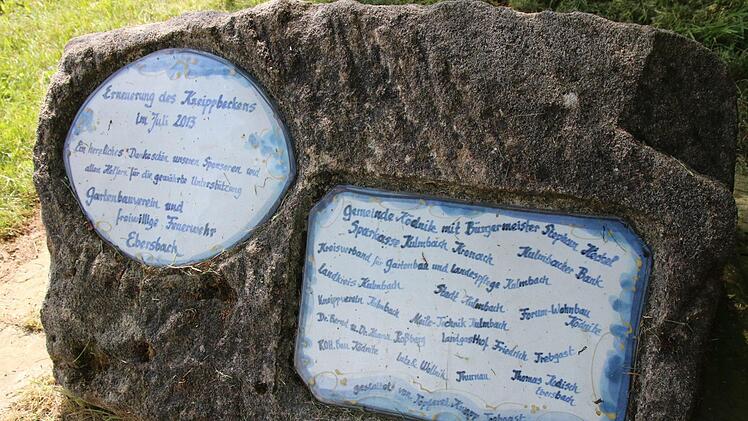 Erneuerung des Kneippbeckens
im Juli 2013
Ein herzliches Dankeschön unseren Sponsoren und
allen Helfern für die gewährte Unterstützung
Gartenbauverein und
freiwillige Feuerwehr
Ebersbach
Gemeinde Ködnitz mit Bürgermeister Stephan Heckel
Sparkasse Kulmbach Kronach Kulmbacher Bank
Kreisverband für Gartenbau und Landespflege Kulmbach
Landkreis Kulmbach Stadt Kulmbach Forum-Wohnbau
Kneippverein Kulmbach Maile-Technik Kulmbach Ködnitz
Dr. Bernd u. Dr. Hanna Roßberg Landgasthof Friedrich Trebgast
ROH. Bau Ködnitz Thurnau Thomas
Ebersbach
gestaltet von Töpferei Trebgast